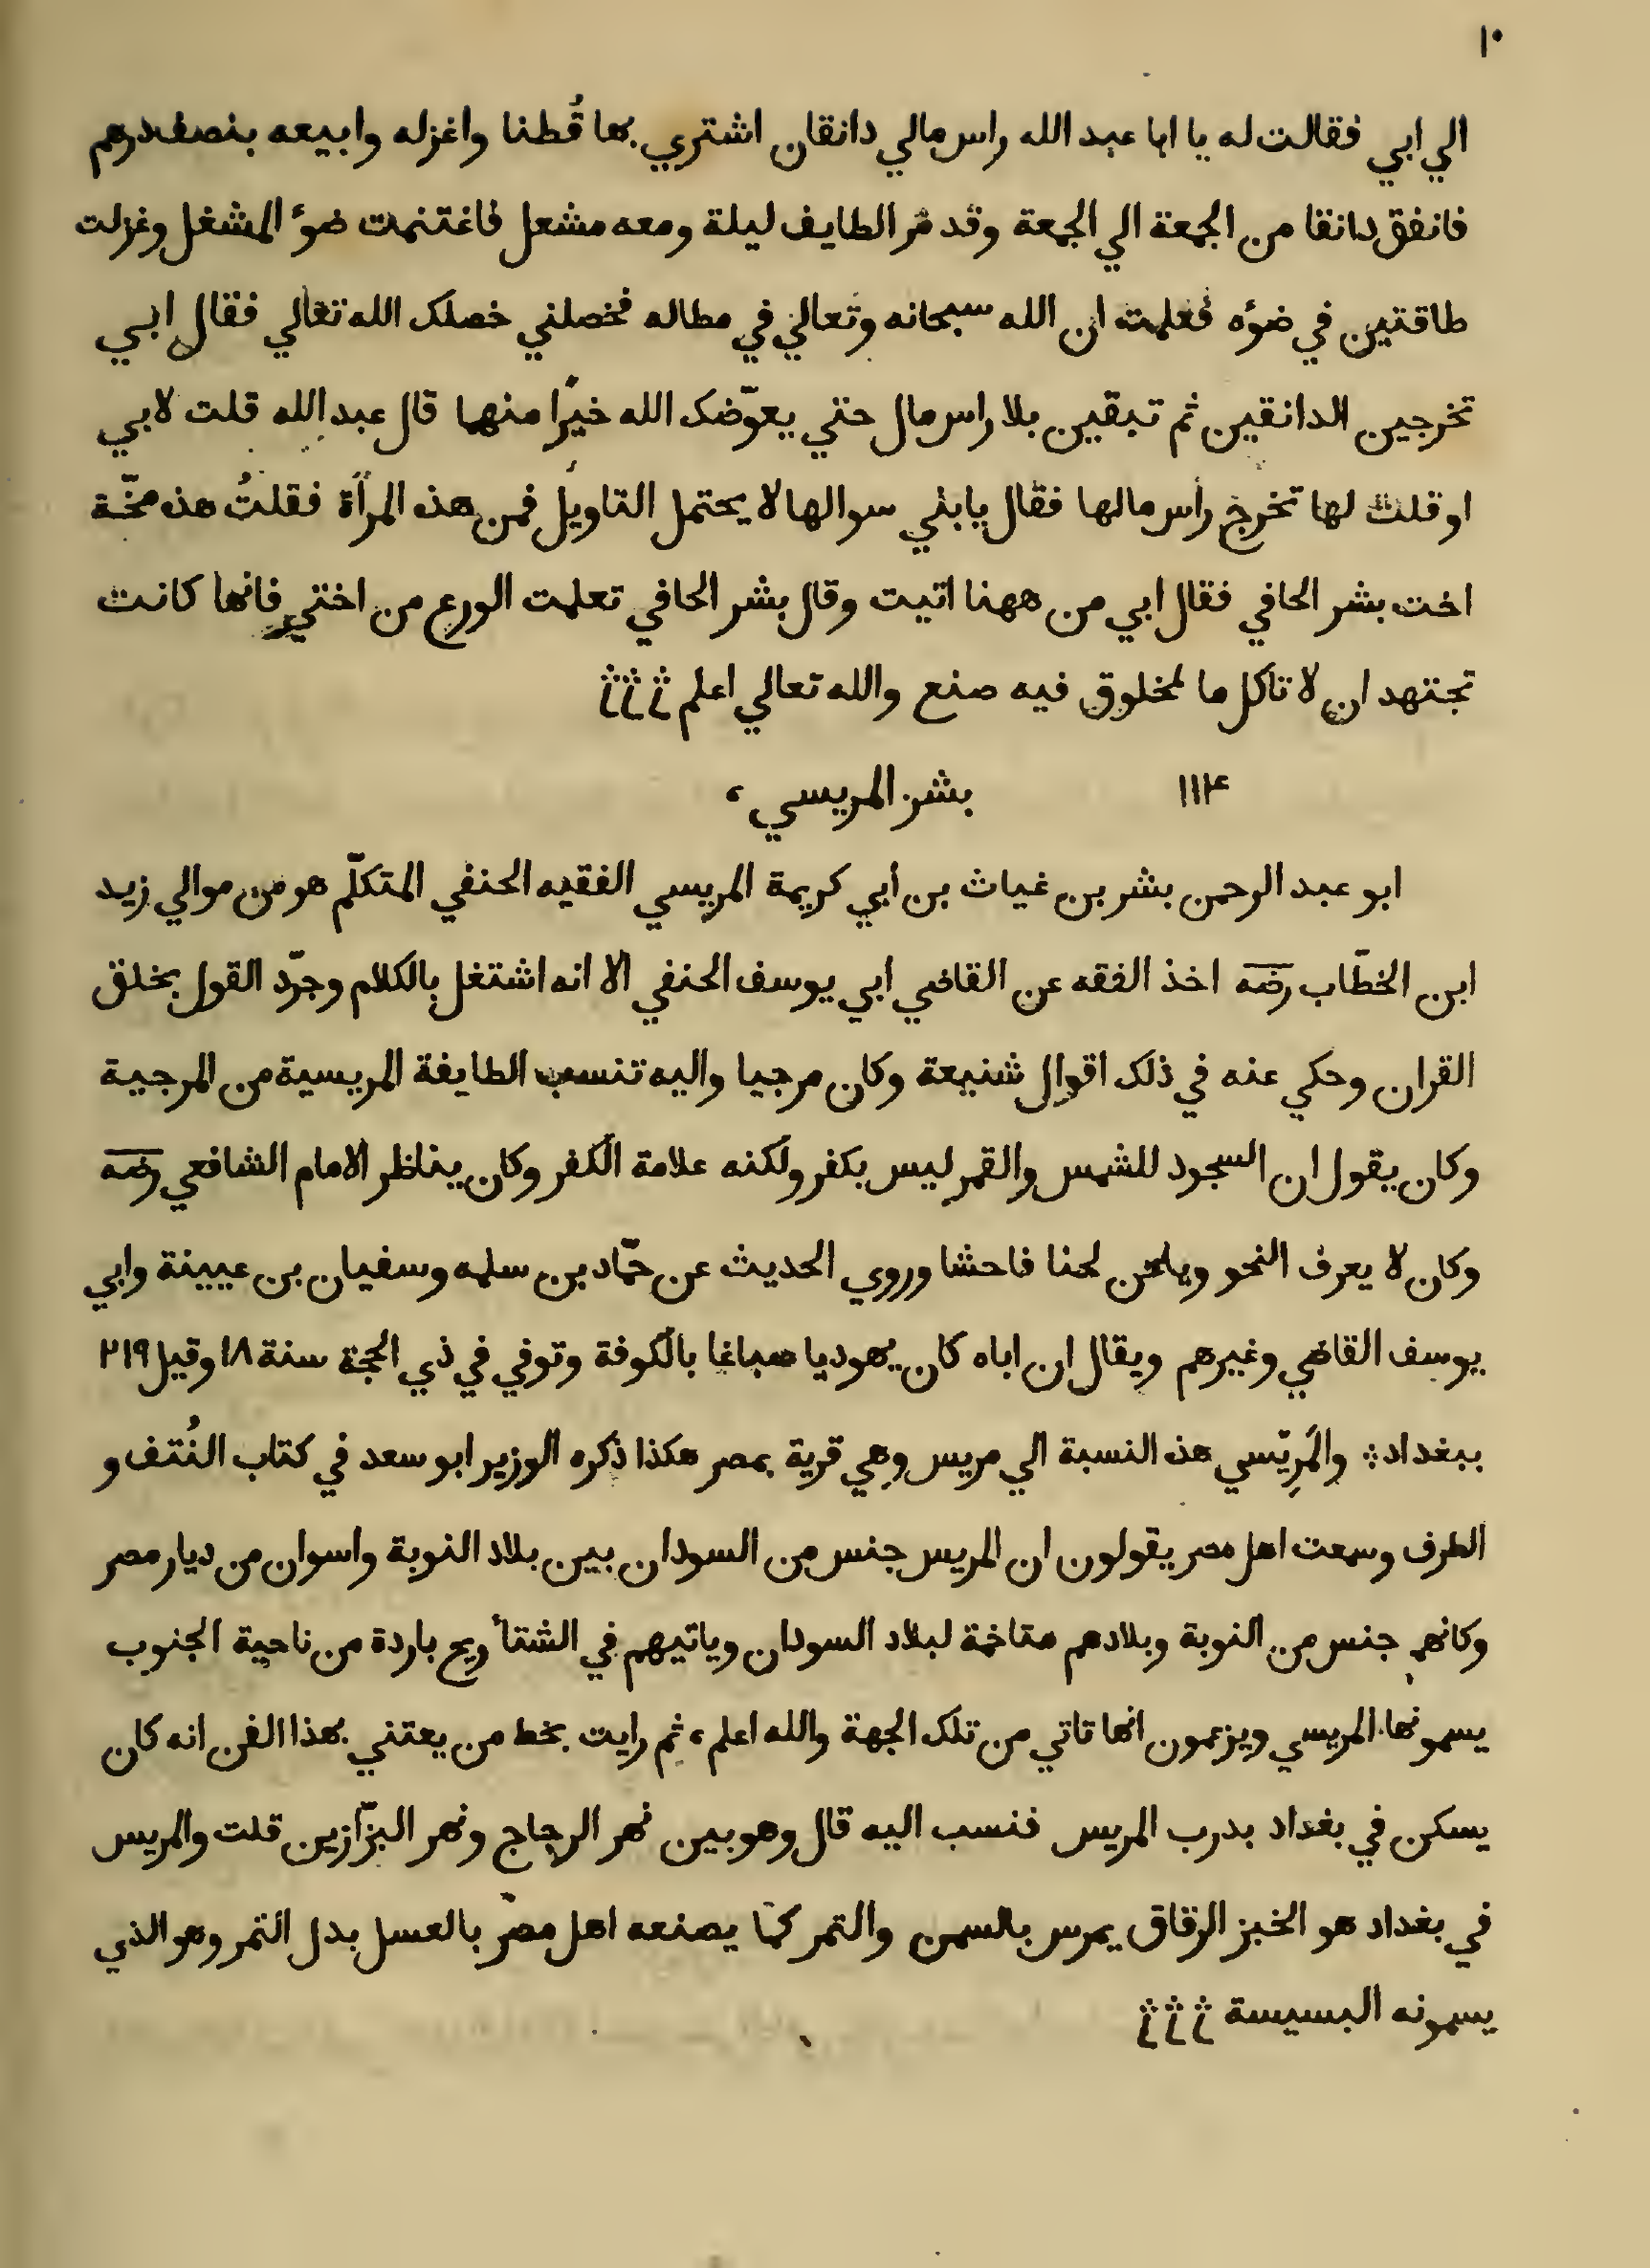 ١٠
الي ابي فقالت له يا ابا عبد الله راس مالي دانقان اشتري بها قُطنا واغزله وابيعه بنصف درهم
فانفق دانقا من الجمعة الي الجمعة وقد مرّ الطايف ليلة ومعه مشعل فاغتنمت ضوء المشغل وغزلت
طاقتين في ضوءه فعلمت ان الله سبحانه وتعالي في مطاله فخصلني خصلك الله تعالي فقال ابي
تخرجين الدانقين ثم تبقين بلا راس مال حتي يعوّضك الله خيرًا منهما قال عبد الله قلت لابي
او قلت لها تخرج رأس مالها فقال يا بني سوالها لا يحتمل التاويل فمن هذه المرأة فقلتُ هذه مخّة
اخت بشر الحافي فقال ابي من ههنا اتيت وقال بشر الحافي تعلمت الورع من اختي فانها كانت
تجتهد ان لا تاكل ما لمخلوق فيه صنع والله تعالي اعلم
١١٤ بشر المريسي،
ابو عبد الرحمن بشر بن غياث بن أبي كريمة المريسي الفقيه الحنفي المتكلّم هو من موالي زيد
ابن الخطّاب رضه اخذ الفقه عن القاضي ابي يوسف الحنفي الا انه اشتغل بالكلام وجرّد القول بخلق
القران وحكي عنه في ذلك اقوال شنيعة وكان مرجيا واليه تنسب الطايفة المريسية من المرجية
وكان يقول ان السجود للشمس والقمر ليس بكفر ولكنه علامة الكفر وكان يناظر الامام الشافعي رضه
وكان لا يعرف النحو ويلحن لحنا فاحشا وروي الحديث عن حمّاد بن سلمه وسفيان بن عيينة وابي
يوسف القاضي وغيرهم ويقال ان اباه كان يهوديا صباغا بالكوفة وتوفي في ذي الحجة سنة ١٨ وقيل ٢١٩
ببغداد ؞ والمَرِيّسي هذه النسبة الي مريس وهي قرية بمصر هكذا ذكره الوزير ابو سعد في كتاب النُتف و
الطرف وسمعت اهل مصر يقولون ان المريس جنس من السودان بين بلاد النوبة واسوان من ديار مصر
وكانهم جنس من النوبة وبلادهم متاخمة لبلاد السودان وياتيهم في الشتاء ريح باردة من ناحية الجنوب
يسمونها المريسي ويزعمون انها تاتي من تلك الجهة والله اعلم، ثم رايت بخط من يعتني بهذا الفن انه كان
يسكن في بغداد بدرب المريس فنسب اليه قال وهو بين نهر الرجاج ونهر البزّازين قلت والمريس
في بغداد هو الخبز الرقاق يمرس بالسمن والتمر كما يصنعه اهل مصر بالعسل بدل التمر وهو الذي
يسمونه البسيسة